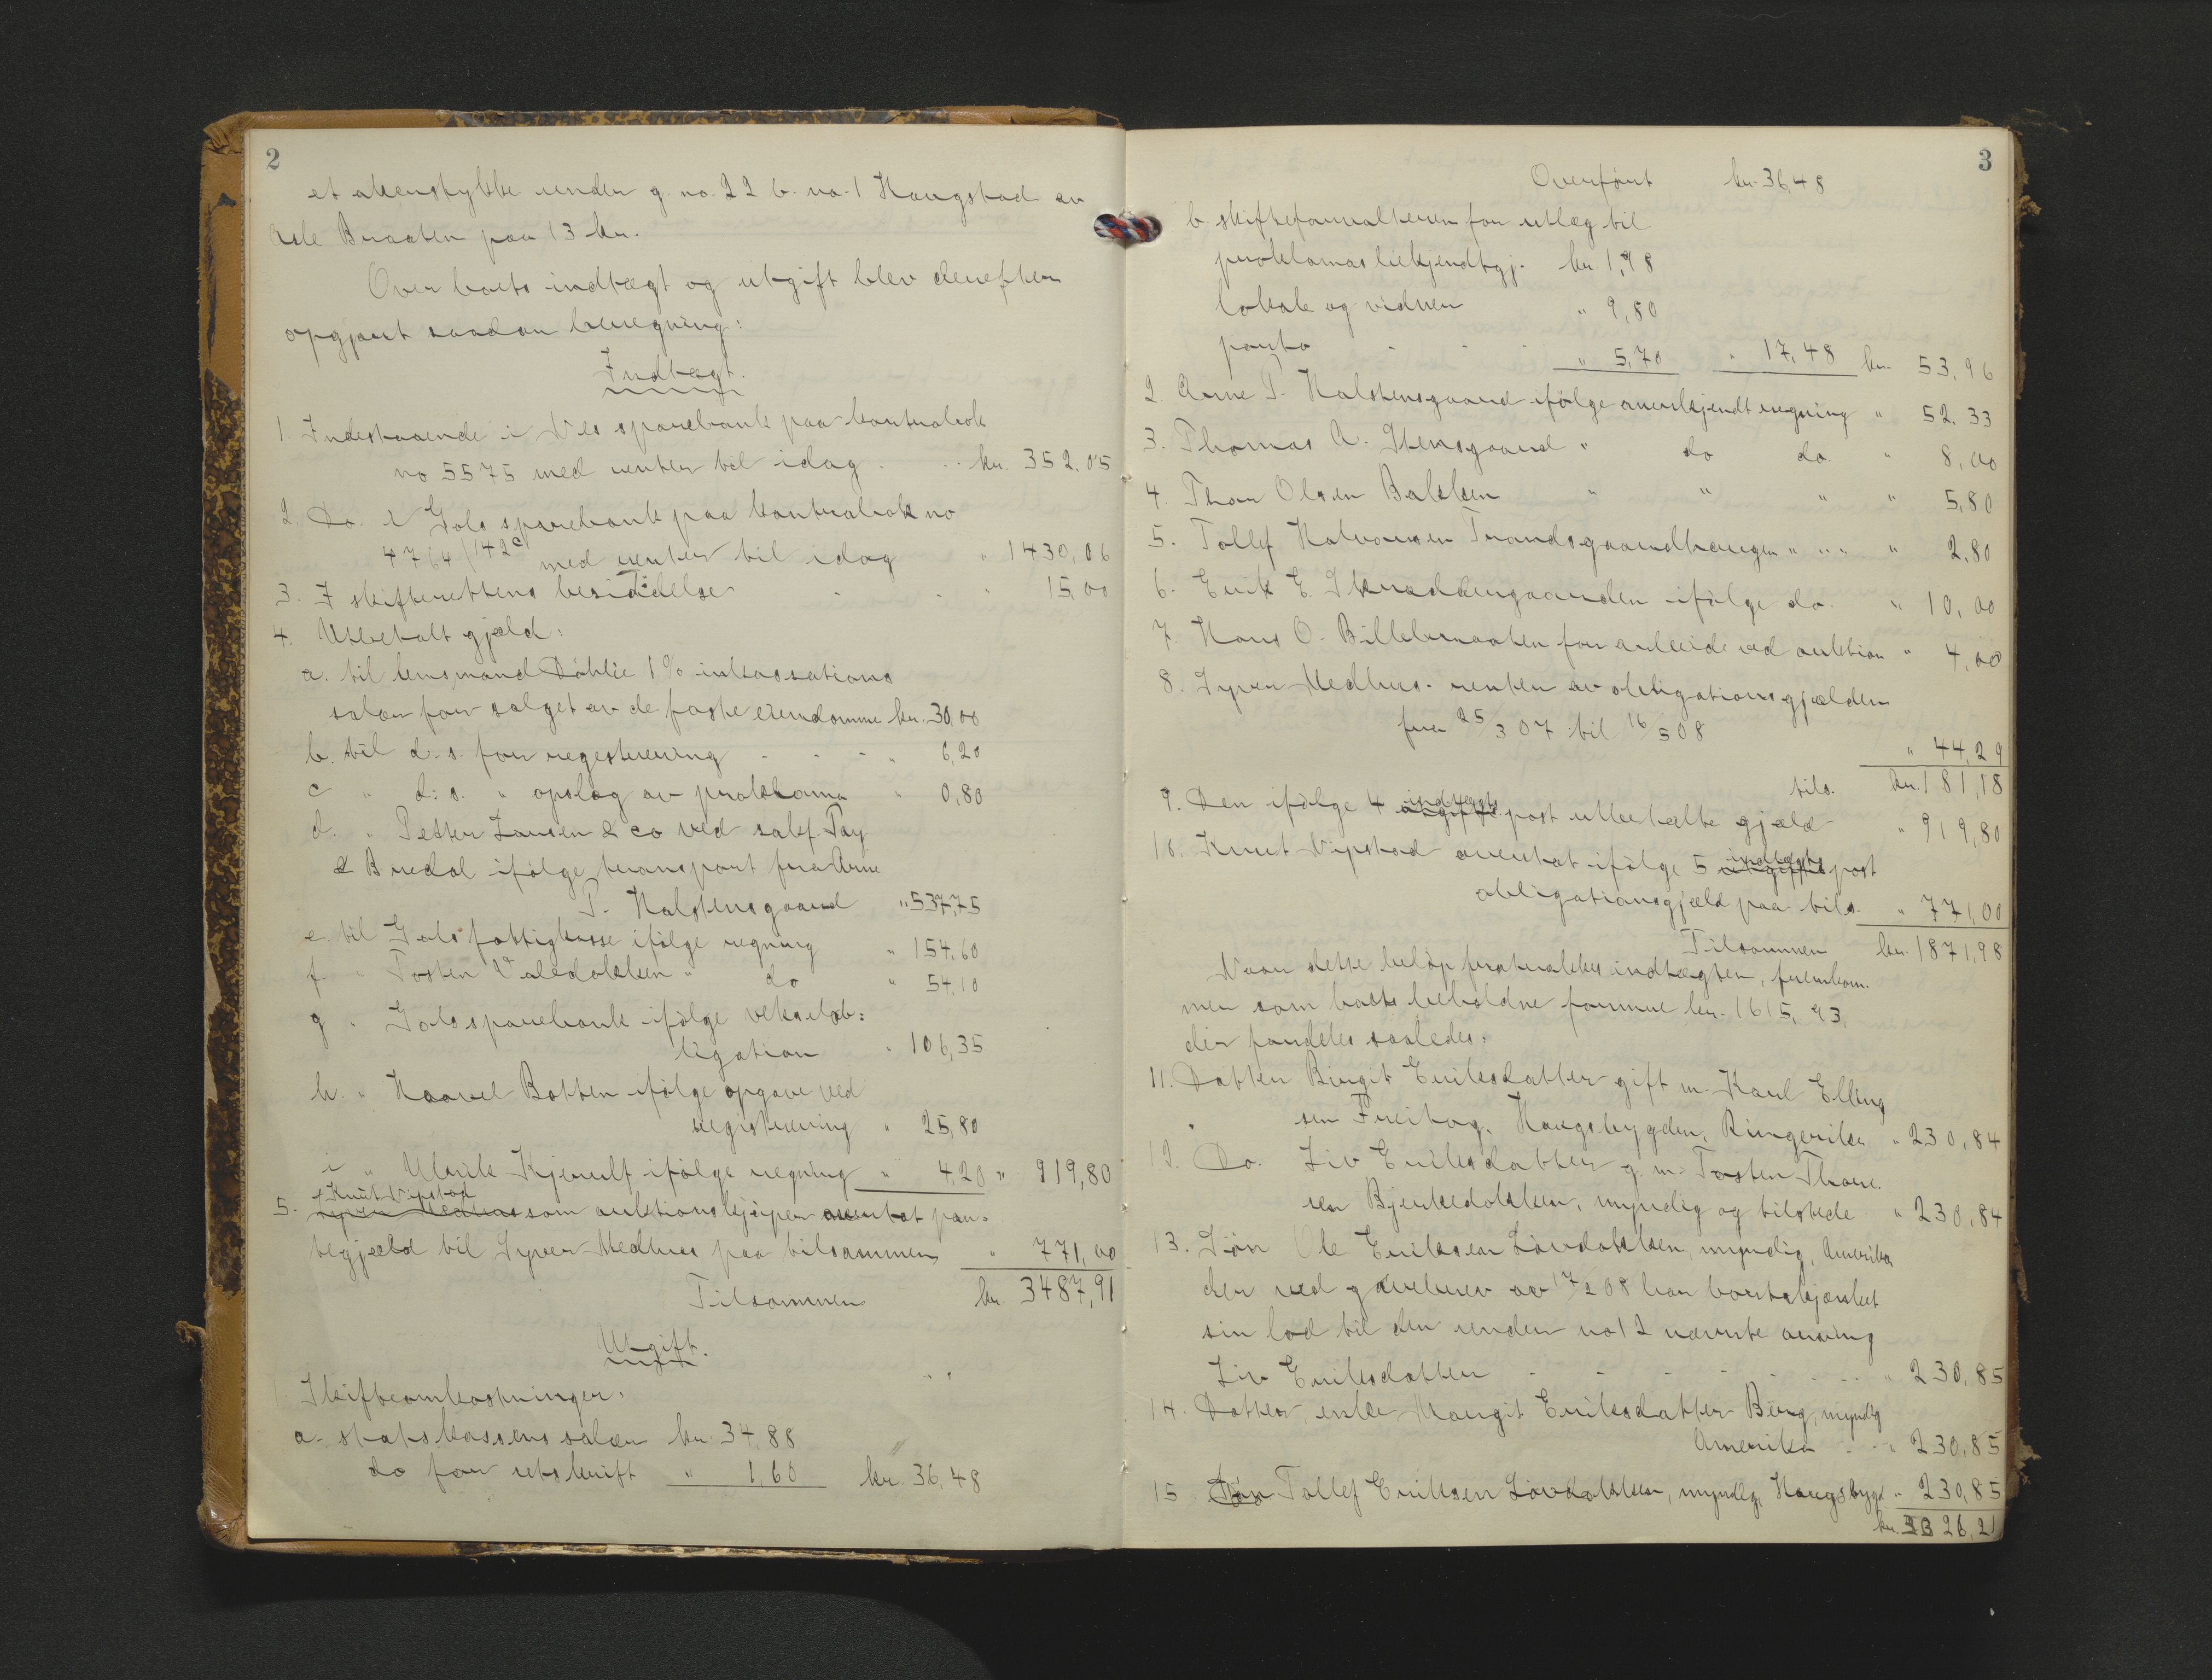 2
et akerstykke under g. no. 22 b. no. 1 Haugstad av
Asle Braaten paa 13 kr.
Over boets indtægt og utgift blev derefter
opgjort saadan beregning:
Indtægt.
1. Indestaaende i Nes sparebank paa kontrabok
no 5575 med renter til idag kr. 352.05
2. Do. i Gols sparebank paa kontrabok no
4764/142c med renter til idag " 1430,06
3. I skifterettens besiddelse " 15,00
4. Utbetalt gjæld:
a. til lensmand Døhlie 1% inkassations
salær for salget av de faste eiendomme kr. 30,00
b. til d. s. for regestrering " 6,20
c " d: s. " opslag av proklama " 0,80
d. " Petter Larsen & co ved sakf. Pay
& Bredal ifølge transport fra Arne
P. Halstensgaard " 537,75
e. til Gols fattigkasse ifølge regning " 154,60
f. " Tosten Valedokken " do " 54,10
g " Gols sparebank ifølge vekselob:
ligation " 106,35
h. " Haavel Botten ifølge opgave ved
registrering " 25,80
i " Ulrik Kjerulf ifølge regning " 4,20 " 919,80
Knut Vipstad
5. Syver Medhus som auktionskjøper overtat pan-
tegjæld til Syver Medhus paa tilsammen " 771,00
Tilsammen kr. 3487,91
Utgift.
1. Skifteomkostninger:
a. statskassens salær kr. 34,88
do for utskrift " 1,60 kr. 36,48
3
Overført kr. 36,48
b. skifteforvalteren for utlæg til
proklamas bekjendtgj. kr. 1,98
lokale og vidner " 9,80
porto " 5,70 " 17,48 kr. 53,96
2. Arne P. Halstensgaard ifølge anerkjendt regning " 52.33
3. Thomas A. Stensgaard " do do. " 8,00
4. Thor Olsen Bakken " " " " 5,80
5. Tollef Halvorsen Trandsgaardhaugen " " " " 2,80
6. Erik E. Skraddergaarden ifølge do. " 10,00
7. Hans O. Billebraaten for arbeide ved auktion " 4,00
8. Syver Medhus. renter av obligationsgjælden
fra 25/3 07 til 16/5 08 " 44,29
tils. kr. 181,18
indtægts
9. Den ifølge 4 utgifts post utbetalte gjæld " 919,80
indtægts
10. Knut Vipstad overtat ifølge 5 utgifts post
obligationsgjæld paa tils. " 771,00
Tilsammen kr. 1871,98
Naar dette beløp fratrækkes indtægten, fremkom-
mer som boets beholdne formue kr. 1615,93,
der fordeles saaledes:
11. Datter Birgit Eriksdatter gift m. Karl Elling
sen Freihog. Haugsbygden, Ringerike " 230,84
12. Do. Liv Eriksdatter g. m. Tosten Thore
sen Bjerkedokken, myndig og tilstede " 230,84
13. Søn Ole Eriksen Løvdokken, myndig, Amerika
der ved gavebrev av 17/2 08 har bortskjænket
sin lod til den under no 12 nævnte arving
Liv Eriksdatter " 230,85
14. Datter, enke Margit Eriksdatter Berg, myndig
Amerika " 230,85
15 Søn Tollef Eriksen Løvdokken, myndig, Haugsbygd " 230,85
kr. 3326,21